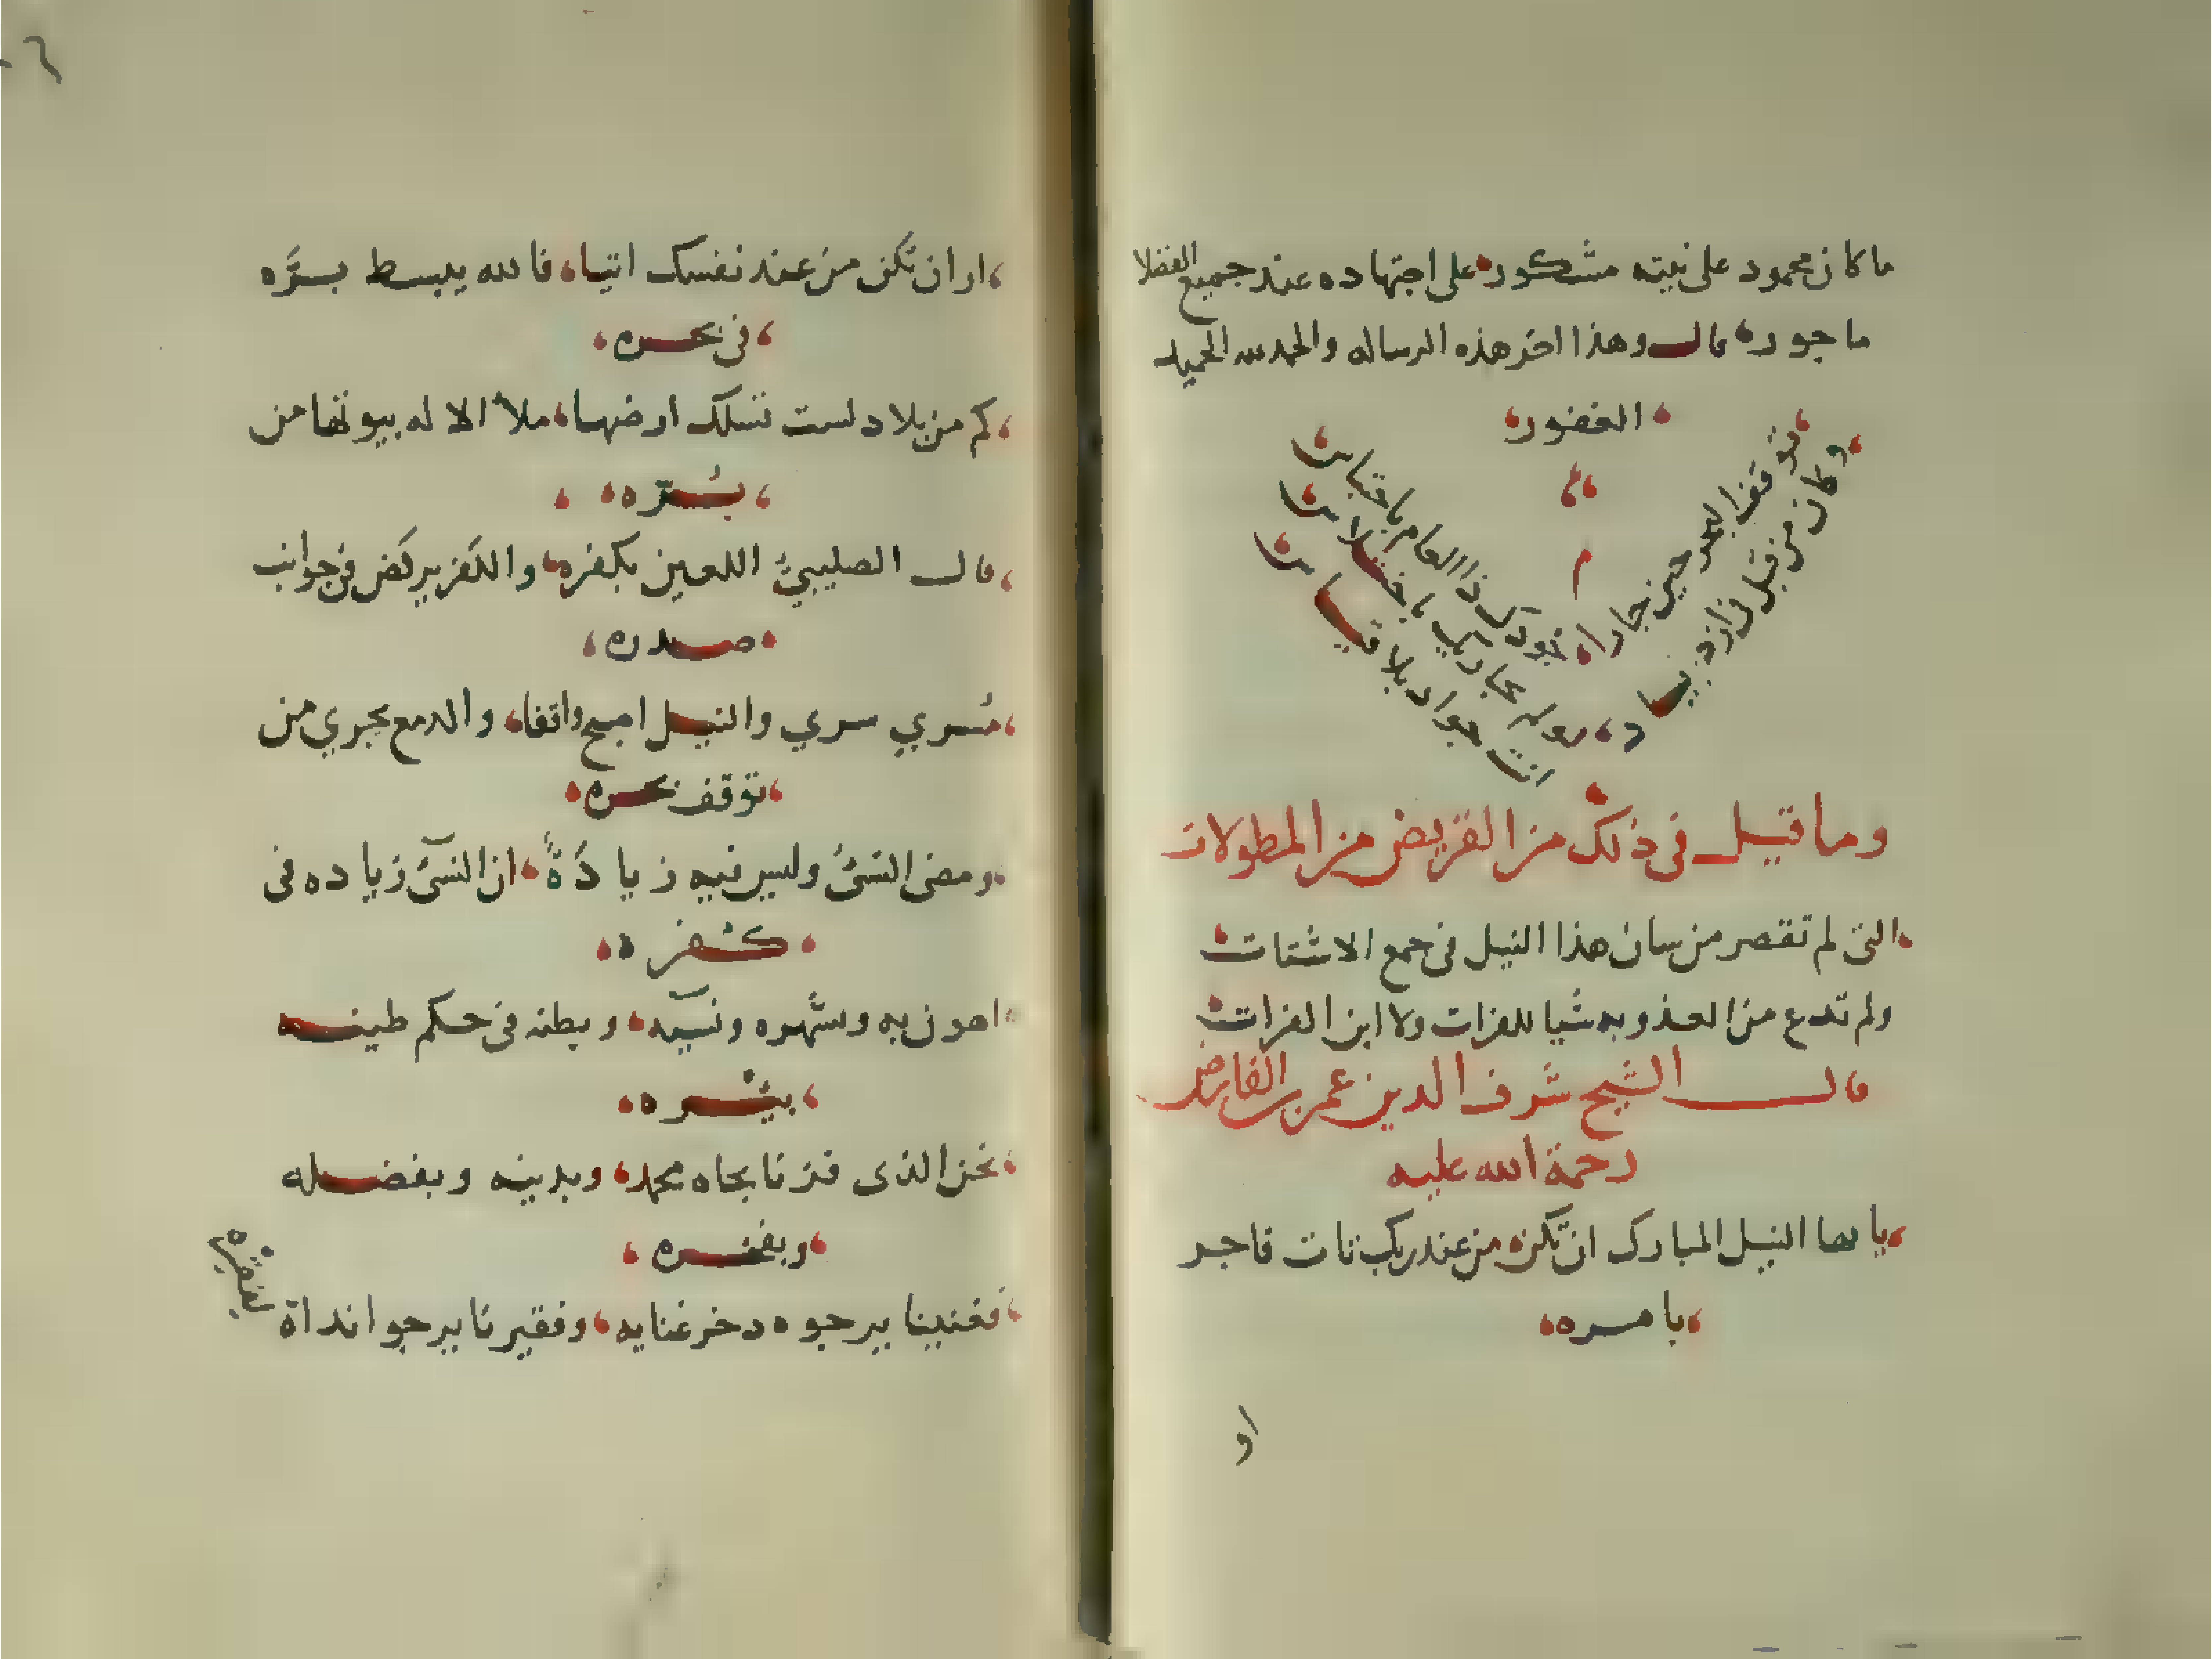 ما كان محمود على نيته مشكور على اجتهاده عند جميع الفضلا
ماجور قال وهذا اخر هذه الرساله والحمد لله الحميد
الغفور
م
توقف البحر حين جاراه
وكان من قبل في ازديا
د
جودك ذا العام باقتباس
يجاريك باختلاس
انت جواد بلا قياس
وما قيل في ذلك من القريض من المطولات
التى لم تقصر من سان هذا النيل في جمع الاشتات
ولم تدع من العذوبه شيا للفرات ولا ابن الفرات
قال الشيخ شرف الدين عمر بن الفارض
رحمة الله عليه
يا ايها النيل المبارك ان تكن من عند ربك تات فاجر
بامره
او
او ان تكن من عند نفسك اتيا فالله يبسط بره
في بحره
كم من بلاد لست تسلك ارضها ملأ الاله بيوتها من
بره
قال الصليبي اللعين بكفره والكفر يركض في جوانب
صدره
مسري سري والنيل اصبح واقفا والدمع يجري من
توقف بحره
ومضى النسئ وليس فيه زيادة ان النسئ زياده فى
كفره
اهون به وبشهره ونسيه وبطنه في حكم طينه
بشره
نحن الذى فزنا بجاه محمد وبدينه وبفضله
وبفخره
فغنينا يرجوه دخر غنايه وفقيرنا يرجو انداة
لفقره